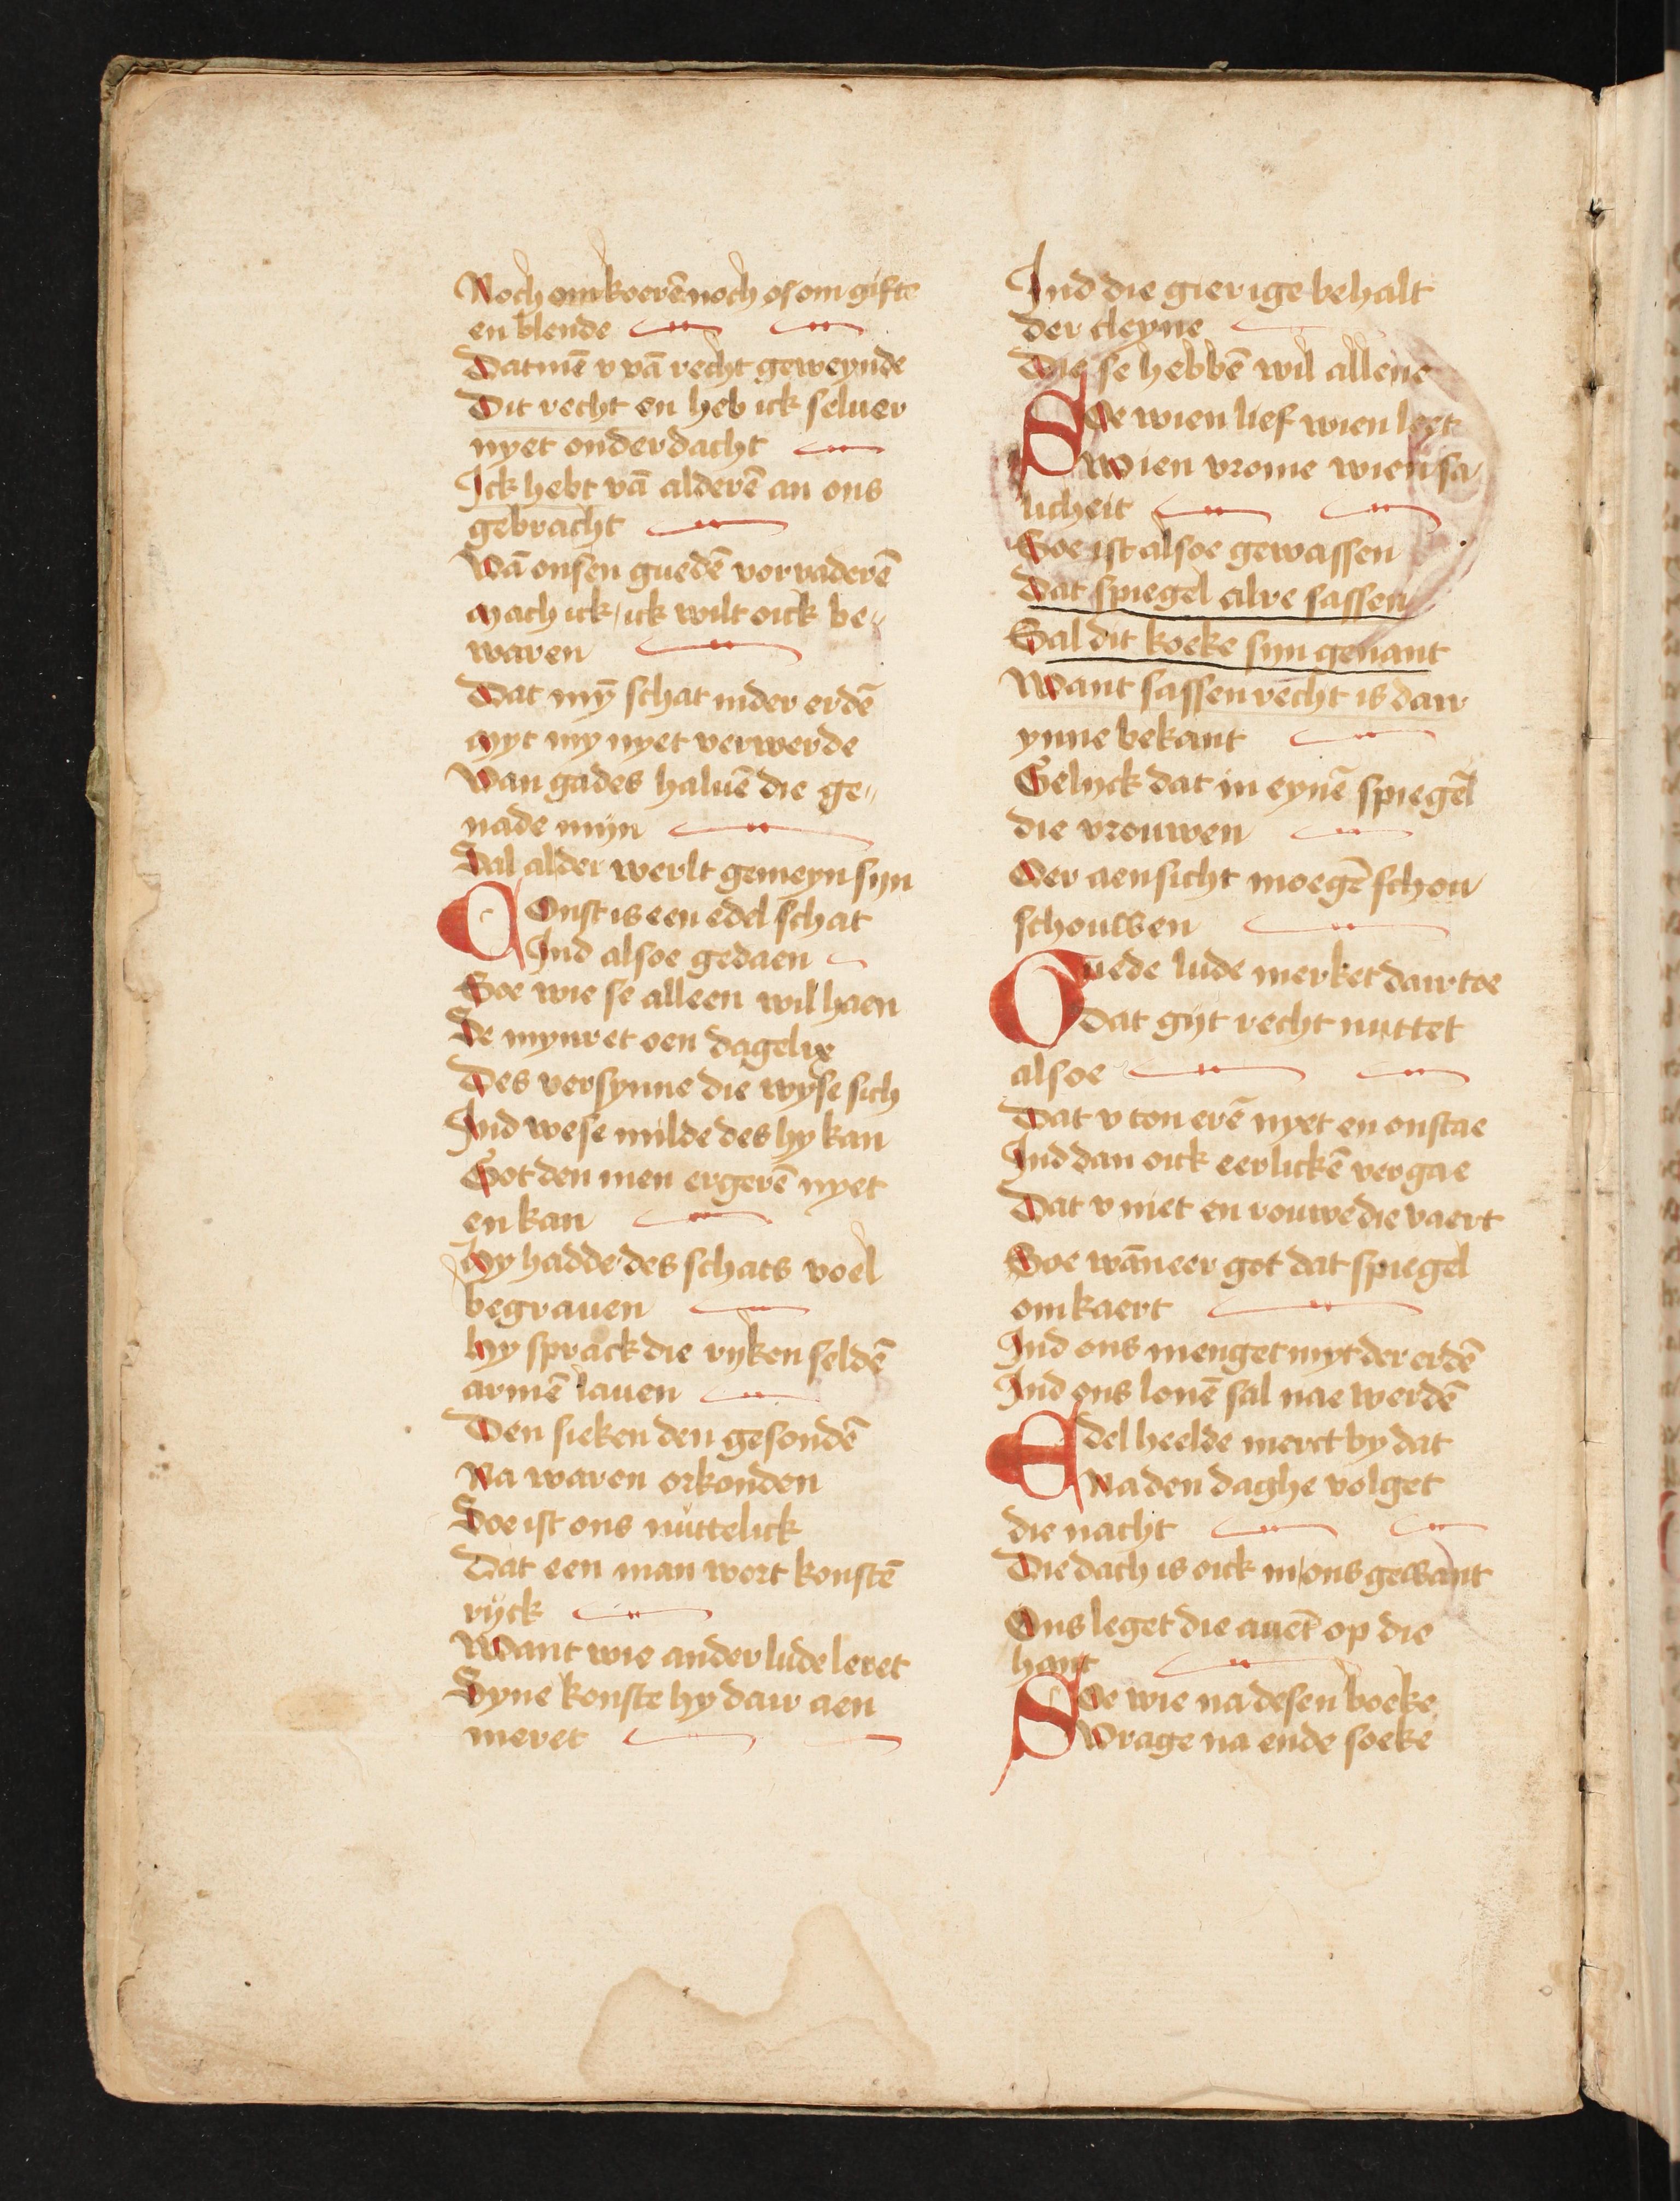 Noch omkoerē noch of om gifte
en blende
Datmē v vā recht geweynde
Dit recht en heb ick seluer
nyet onderdacht
Ick hebt vā alderē an ons
gebracht
Vā onsen guedē vorvaderē
Mach ick / ick wilt oick be〃
waren
Dat mȳ schat inder erdē
Myt my nyet verwerde
Van gades haluē die ge〃
nade mijn
Sal alder werlt gemeyn sijn
Const is een edel schat
Ind alsoe gedaen
Soe wie se alleen wil haen
Se mynret oen dagelix
Des versynne die wyse sich
Ind wese milde des hy kan
Got den men ergerē nyet
en kan
Hy hadde des schats voel
begrauen
Hy sprack die ryken seldē
armē lauen
Den sieken den gesondē
Na waren orkonden
Soe ist ons nuttelick
Dat een man wort konstē
rijck
Want wie ander lude leret
Syne konste hy dair aen
meret
Ind die gierige behalt
der cleyne
Die se hebbē wil allene
Soe wien lief wien leet
Wien vrome wien sa
licheit
Soe ist alsoe gewassen
Dat spiegel alre sassen
Sal dit boeke sijn genant
Want sassen recht is dair
ynne bekant
Gelijck dat in eynē spiegel
die vrouwen
Oer aensicht moegē schou
schouwen
Guede lude merket dair toe
dat gijt recht nuttet
alsoe
Dat v ton erē nyet en onstae
Ind dan oick eerlickē vergae
Dat v niet en rouwe die vaert
Soe wāneer got dat spiegel
omkaert
Ind ons menget myt der erdē
Ind ons lonē sal nae werdē
Edel heelde merct by dat
Na den daghe volget
die nacht
Die dach is oick in ons gewant
Ons leget die auēt op die
hant
Soe wie na desen boeke
Vrage na ende soeke